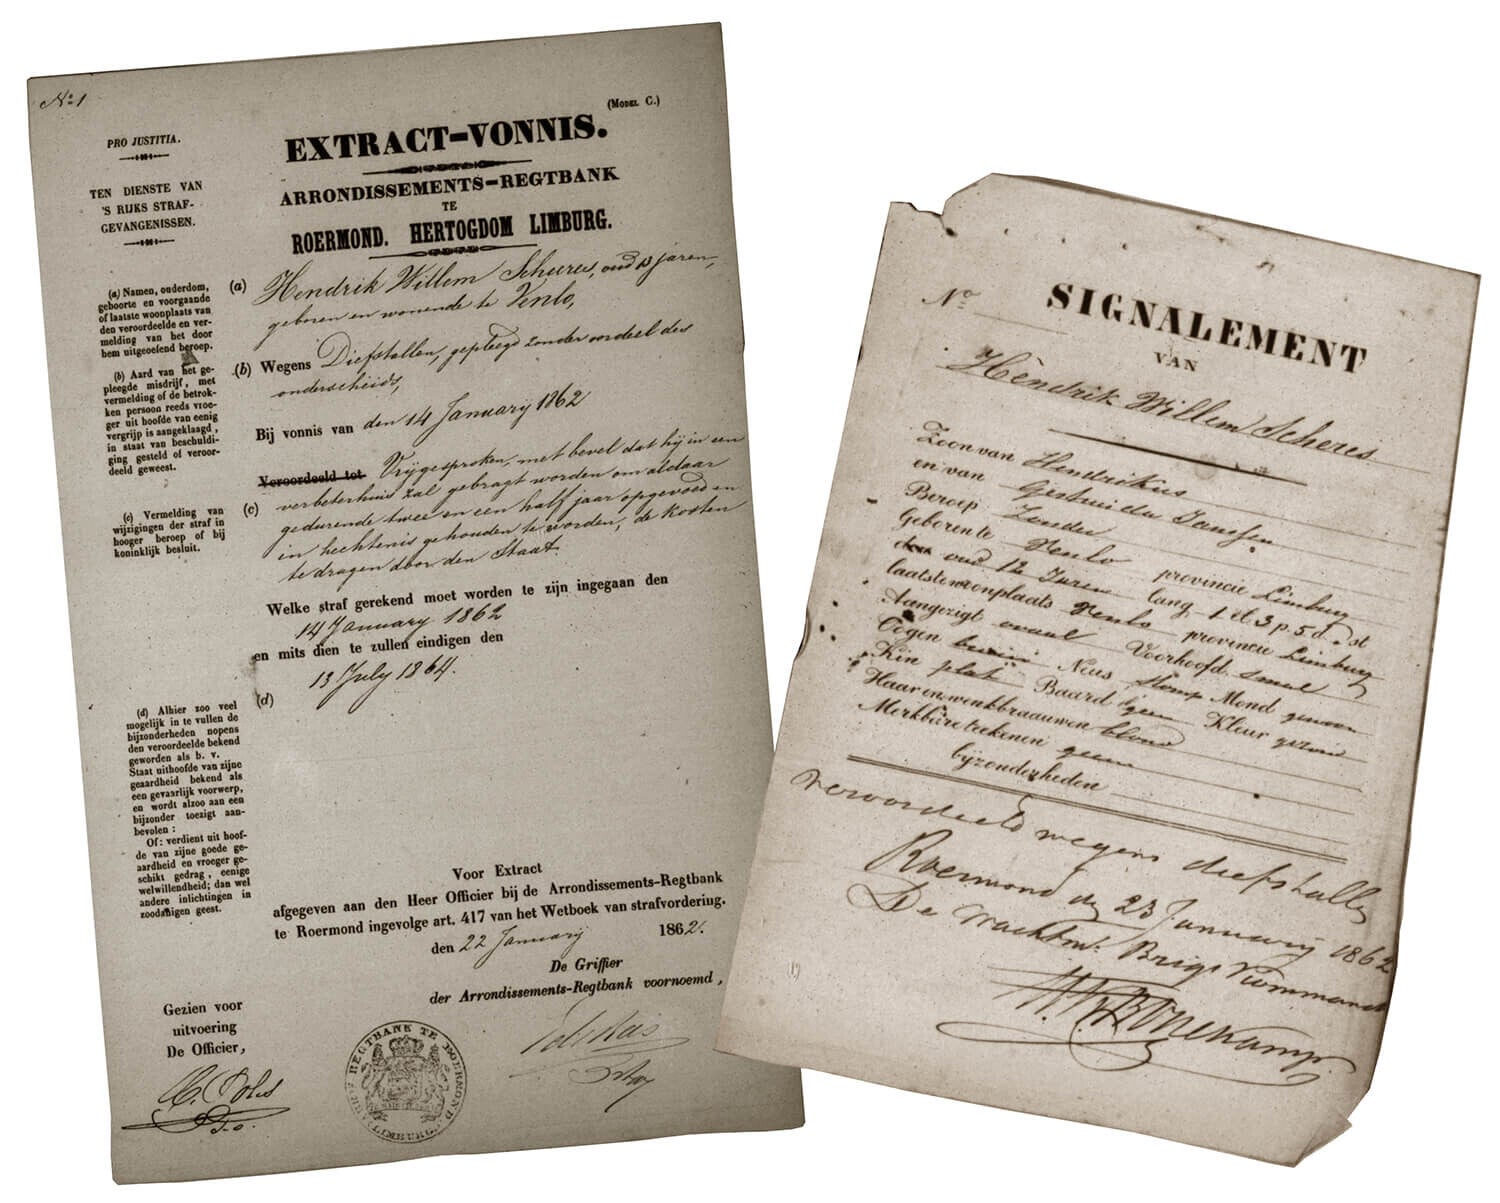 Nº 1
(Model C.)
PRO JUSTITIA.
TEN DIENSTE VAN
'S RIJKS STRAF-
GEVANGENISSEN.
EXTRACT-VONNIS.
ARRONDISSEMENTS-REGTBANK
TE
ROERMOND. HERTOGDOM LIMBURG.
(a) Namen, ouderdom,
geboorte en voorgaande
of laatste woonplaats van
den veroordeelde en ver-
melding van het door
hem uitgeoefend beroep.
(b) Aard van het ge-
pleegde misdrijf, met
vermelding of de betrok-
ken persoon reeds vroe-
ger uit hoofde van eenig
vergrijp is aangeklaagd,
in staat van beschuldi-
ging gesteld of veroor-
deeld geweest.
(c) Vermelding van
wijzigingen der straf in
hooger beroep of bij
koninklijk besluit.
(d) Alhier zoo veel
mogelijk in te vullen de
bijzonderheden nopens
den veroordeelde bekend
geworden als b. v.
Staat uithoofde van zijne
geaardheid bekend als
een gevaarlijk voorwerp,
en wordt alzoo aan een
bijzonder toezigt aan-
bevolen :
Of: verdient uit hoof-
de van zijne goede ge-
aardheid en vroeger ge-
schikt gedrag, eenige
welwillendheid; dan wel
andere inlichtingen in
zoodanigen geest.
(a) Hendrik Willem Scheres, oud 13 jaren,
geboren en wonende te Venlo,
(b) Wegens Diefstallen, gepleegd zonder oordeel des
onderscheids,
Bij vonnis van den 14 January 1862
Veroordeeld tot Vrijgesproken, met bevel dat hij in een
(c) verbeterhuis zal gebragt worden om aldaar
gedurende twee en een half jaar opgevoed en
in hechtenis gehouden te worden, de kosten
te dragen door den Staat.
Welke straf gerekend moet worden te zijn ingegaan den
14 January 1862
en mits dien te zullen eindigen den
13 July 1864.
(d)
Voor Extract
afgegeven aan den Heer Officier bij de Arrondissements-Regtbank
te Roermond ingevolge art. 417 van het Wetboek van strafvordering.
den 22 January 1862.
De Griffier
der Arrondissements-Regtbank voornoemd,
Gezien voor
uitvoering
De Officier,
ARR. REGTBANK TE ROERMOND
(LIMBURG)
Nº
SIGNALEMENT
VAN
Hendrik Willem Scheres
Zoon van Hendrikus
en van Gertruida Janssen
Beroep Zonder
Geboren te Venlo provincie Limburg
oud 12 Jaren lang 1 el 3 p. 5 d. st
laatste woonplaats Venlo provincie Limburg
Aangezigt ovaal Voorhoofd smal
Oogen bruin Neus stomp Mond gewoon
Kin plat Baard geen Kleur gezond
Haar en wenkbraauwen blond
Merkbare teekenen geen
bijzonderheden
veroordeeld wegens diefstallen
Roermond den 23 January 1862
De wachtmr. Brigr Kommandt